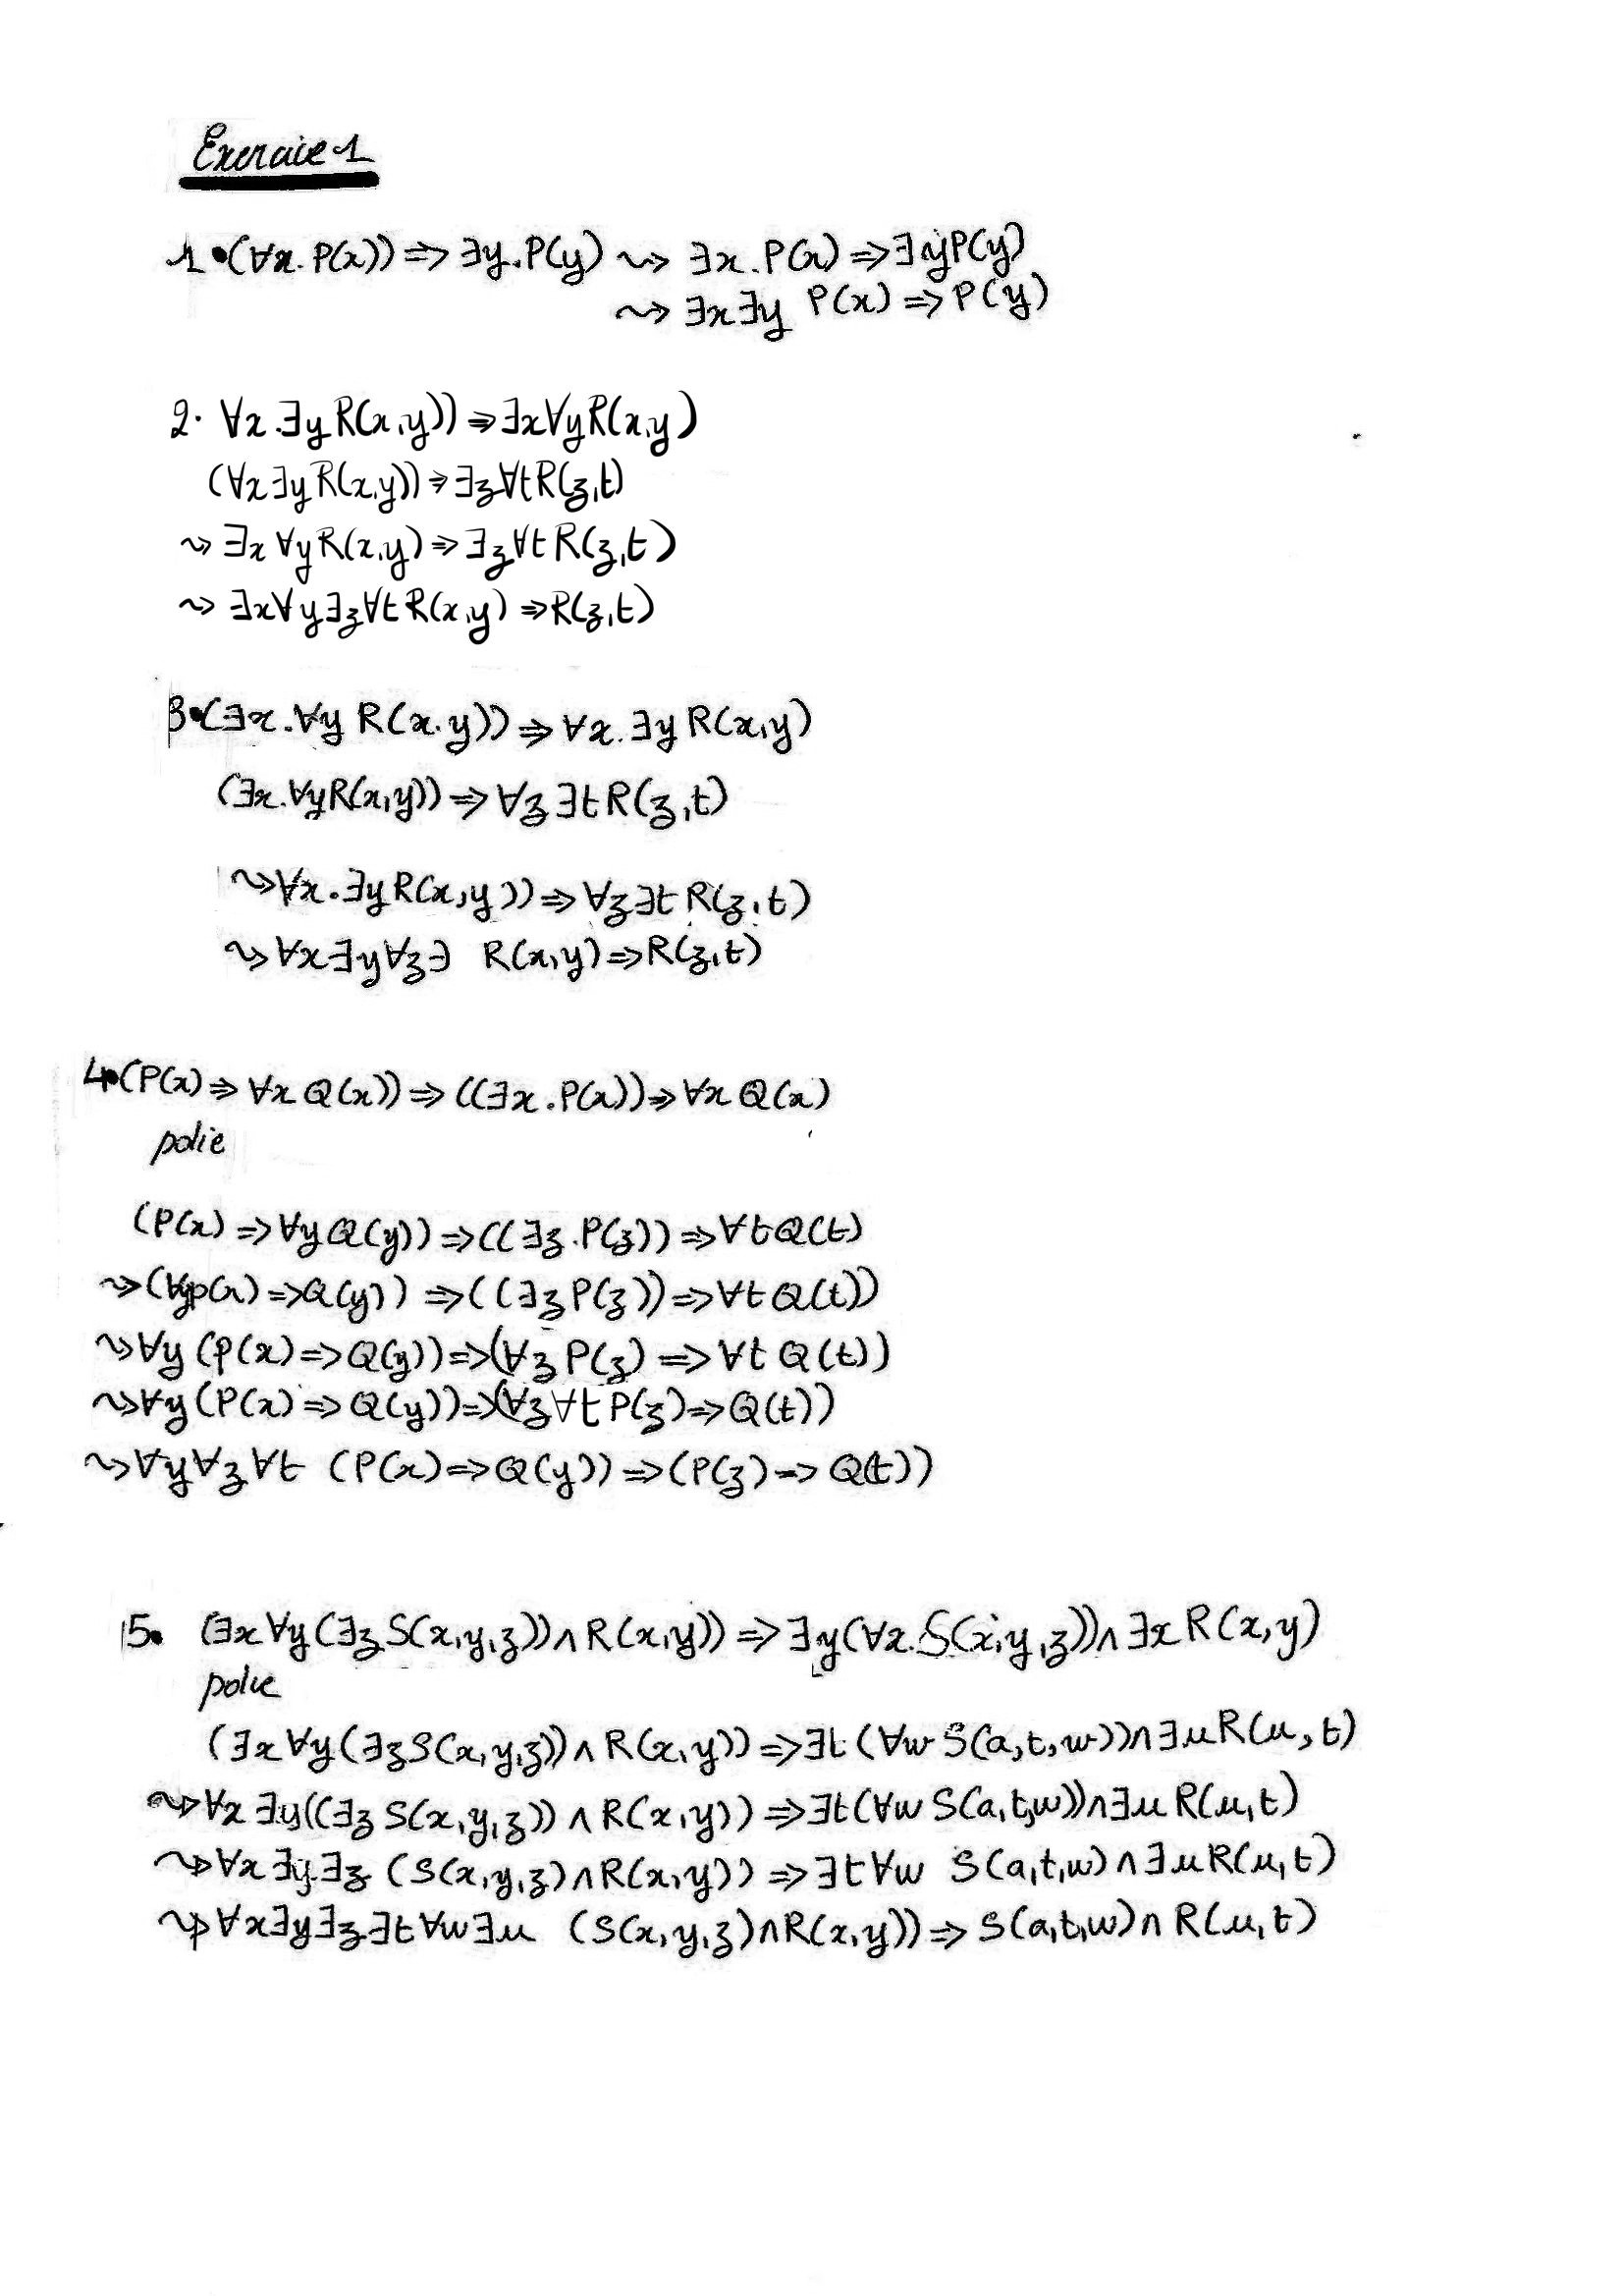 Exercice 1
1•(∀x. P(x)) ⇒ ∃y.P(y) ⇝ ∃x.P(x) ⇒ ∃yP(y)
⇝ ∃x∃y P(x) ⇒ P(y)
2. ∀x.∃y R(x,y)) ⇒ ∃x∀yR(x,y)
(∀x∃yR(x,y)) ⇒ ∃z∀tR(z,t)
⇝ ∃x ∀yR(x,y) ⇒ ∃z∀tR(z,t)
⇝ ∃x∀y∃z∀tR(x,y) ⇒ R(z,t)
3•(∃x.∀y R(x.y)) ⇒ ∀x.∃y R(x,y)
(∃x.∀yR(x,y)) ⇒ ∀z∃tR(z,t)
⇝ ∀x.∃yR(x,y)) ⇒ ∀z∃t R(z,t)
⇝ ∀x∃y∀z∃ R(x,y) ⇒ R(z,t)
4•(P(x) ⇒ ∀x Q(x)) ⇒ ((∃x.P(x)) ⇒ ∀x Q(x)
polie
(P(x) ⇒ ∀yQ(y)) ⇒ ((∃z.P(z)) ⇒ ∀tQ(t)
⇝ (∀yp(x) ⇒ Q(y)) ⇒ ((∃zP(z)) ⇒ ∀tQ(t))
⇝ ∀y (P(x) ⇒ Q(y)) ⇒ (∀z P(z) ⇒ ∀t Q(t))
⇝ ∀y (P(x) ⇒ Q(y)) ⇒ (∀z∀t P(z) ⇒ Q(t))
⇝ ∀y∀z∀t (P(x) ⇒ Q(y)) ⇒ (P(z) ⇒ Q(t))
5• (∃x∀y(∃zS(x,y,z)) ∧ R(x,y)) ⇒ ∃y(∀x.S(x,y,z)) ∧ ∃x R(x,y)
polie
(∃x∀y(∃zS(x,y,z)) ∧ R(x,y)) ⇒ ∃t (∀w S(a,t,w)) ∧ ∃uR(u,t)
⇝ ∀x∃y((∃z S(x,y,z)) ∧ R(x,y)) ⇒ ∃t(∀w S(a,t,w)) ∧ ∃u R(u,t)
⇝ ∀x∃y.∃z (S(x,y,z) ∧ R(x,y)) ⇒ ∃t∀w S(a,t,w) ∧ ∃uR(u,t)
⇝ ∀x∃y∃z∃t∀w∃u (S(x,y,z) ∧ R(x,y)) ⇒ S(a,t,w) ∧ R(u,t)